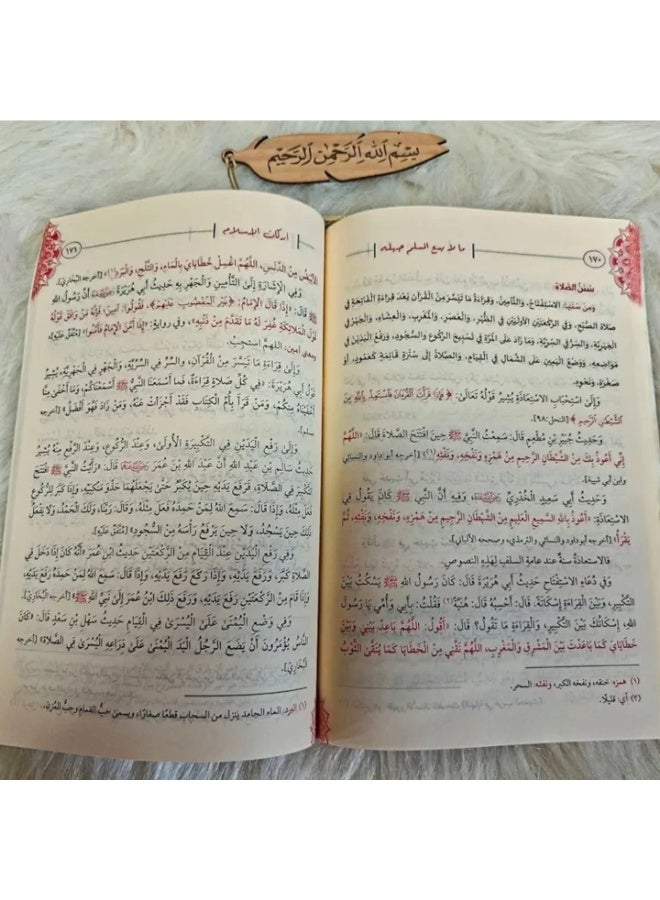 بِسْمِ اللهِ الرَّحْمٰنِ الرَّحِيْمِ
ما لا يسع المسلم جهله
١٧٠
سُنَنُ الصَّلَاةِ:
وَمِنْ سُنَنِهَا: الِاسْتِفْتَاحُ، وَالتَّأْمِينُ، وَقِرَاءَةُ مَا تَيَسَّرَ مِنَ الْقُرْآنِ بَعْدَ قِرَاءَةِ الْفَاتِحَةِ فِي
صَلَاةِ الصُّبْحِ، وَفِي الرَّكْعَتَيْنِ الْأُولَيَيْنِ فِي الظُّهْرِ، وَالْعَصْرِ، وَالْمَغْرِبِ، وَالْعِشَاءِ، وَالْجَهْرُ فِي
الْجَهْرِيَّةِ، وَالسِّرُّ فِي السِّرِّيَّةِ، وَمَا زَادَ عَلَى الْمَرَّةِ فِي تَسْبِيحِ الرُّكُوعِ وَالسُّجُودِ، وَرَفْعُ الْيَدَيْنِ فِي
مَوَاضِعِهِ، وَوَضْعُ الْيَمِينِ عَلَى الشِّمَالِ فِي الْقِيَامِ، وَالصَّلَاةُ إِلَى سُتْرَةٍ قَائِمَةٍ كَعَمُودٍ، أَوْ
صَخْرَةٍ، وَنَحْوِهِ.
وَإِلَى اسْتِحْبَابِ الِاسْتِعَاذَةِ يُشِيرُ قَوْلُهُ تَعَالَى: ﴿فَإِذَا قَرَأْتَ الْقُرْآنَ فَاسْتَعِذْ بِاللَّهِ مِنَ
الشَّيْطَانِ الرَّجِيمِ﴾ [النحل:٩٨].
وَحَدِيثُ جُبَيْرِ بْنِ مُطْعِمٍ قَالَ: سَمِعْتُ النَّبِيَّ ﷺ حِينَ افْتَتَحَ الصَّلَاةَ قَالَ: «اللَّهُمَّ
إِنِّي أَعُوذُ بِكَ مِنَ الشَّيْطَانِ الرَّجِيمِ مِنْ هَمْزِهِ، وَنَفْخِهِ، وَنَفْثِهِ»(١) [أخرجه أبو داود والنسائي
وابن أبي شيبة].
وَحَدِيثُ أَبِي سَعِيدٍ الْخُدْرِيِّ وَفِيهِ أَنَّ النَّبِيَّ ﷺ كَانَ يَقُولُ فِي
الِاسْتِعَاذَةِ: «أَعُوذُ بِاللَّهِ السَّمِيعِ الْعَلِيمِ مِنَ الشَّيْطَانِ الرَّجِيمِ مِنْ هَمْزِهِ، وَنَفْخِهِ، وَنَفْثِهِ، ثُمَّ
يَقْرَأُ» [أخرجه أبو داود والنسائي والترمذي، وصححه الألباني].
فالاستعاذة سنةٌ عند عامةِ السلفِ لِهَذِهِ النصوصِ.
وَفِي دُعَاءِ الِاسْتِفْتَاحِ حَدِيثُ أَبِي هُرَيْرَةَ قَالَ: كَانَ رَسُولُ اللهِ ﷺ يَسْكُتُ بَيْنَ
التَّكْبِيرِ، وَبَيْنَ الْقِرَاءَةِ إِسْكَاتَةً. قَالَ: أَحْسِبُهُ قَالَ: هُنَيَّةً(٢) فَقُلْتُ: بِأَبِي وَأُمِّي يَا رَسُولَ
اللهِ، إِسْكَاتُكَ بَيْنَ التَّكْبِيرِ، وَالْقِرَاءَةِ مَا تَقُولُ؟ قَالَ: «أَقُولُ: اللَّهُمَّ بَاعِدْ بَيْنِي وَبَيْنَ
خَطَايَايَ كَمَا بَاعَدْتَ بَيْنَ الْمَشْرِقِ وَالْمَغْرِبِ، اللَّهُمَّ نَقِّنِي مِنَ الْخَطَايَا كَمَا يُنَقَّى الثَّوْبُ
(١) همزه: خنقه، ونفخه الكبر، ونفثه: السحر.
(٢) أي: قليلًا.
أركان الإسلام
١٧١
الْأَبْيَضُ مِنَ الدَّنَسِ، اللَّهُمَّ اغْسِلْ خَطَايَايَ بِالْمَاءِ، وَالثَّلْجِ، وَالْبَرَدِ»(١) [أخرجه البخاري].
وَفِي الْإِشَارَةِ إِلَى التَّأْمِينِ وَالْجَهْرِ بِهِ حَدِيثُ أَبِي هُرَيْرَةَ أَنَّ رَسُولَ اللهِ
ﷺ قَالَ: «إِذَا قَالَ الْإِمَامُ: ﴿غَيْرِ الْمَغْضُوبِ عَلَيْهِمْ﴾، فَقُولُوا: آمِينَ، فَإِنَّهُ مَنْ وَافَقَ قَوْلُهُ
قَوْلَ الْمَلَائِكَةِ غُفِرَ لَهُ مَا تَقَدَّمَ مِنْ ذَنْبِهِ»، وفي روايةٍ: «إِذَا أَمَّنَ الْإِمَامُ فَأَمِّنُوا» [مُتَّفَقٌ عَلَيْهِ].
ومعنى آمين: اللهم استجب.
وَإِلَى قِرَاءَةِ مَا تَيَسَّرَ مِنَ الْقُرْآنِ، وَالسِّرِّ فِي السِّرِّيَّةِ، وَالْجَهْرِ فِي الْجَهْرِيَّةِ يُشِيرُ
قَوْلُ أَبِي هُرَيْرَةَ: «فِي كُلِّ صَلَاةٍ قِرَاءَةٌ، فَمَا أَسْمَعَنَا النَّبِيُّ ﷺ أَسْمَعْنَاكُمْ، وَمَا أَخْفَى مِنَّا
أَخْفَيْنَاهُ مِنْكُمْ، وَمَنْ قَرَأَ بِأُمِّ الْكِتَابِ فَقَدْ أَجْزَأَتْ عَنْهُ، وَمَنْ زَادَ فَهُوَ أَفْضَلُ» [أخرجه
مسلم].
وَإِلَى رَفْعِ الْيَدَيْنِ فِي التَّكْبِيرَةِ الْأُولَى، وَعِنْدَ الرُّكُوعِ، وَعِنْدَ الرَّفْعِ مِنْهُ يُشِيرُ
حَدِيثُ سَالِمِ بْنِ عَبْدِ اللهِ أَنَّ عَبْدَ اللهِ بْنَ عُمَرَ قَالَ: «رَأَيْتُ النَّبِيَّ ﷺ افْتَتَحَ
التَّكْبِيرَ فِي الصَّلَاةِ، فَرَفَعَ يَدَيْهِ حِينَ يُكَبِّرُ حَتَّى يَجْعَلَهُمَا حَذْوَ مَنْكِبَيْهِ، وَإِذَا كَبَّرَ لِلرُّكُوعِ
فَعَلَ مِثْلَهُ، وَإِذَا قَالَ: سَمِعَ اللهُ لِمَنْ حَمِدَهُ فَعَلَ مِثْلَهُ، وَقَالَ: رَبَّنَا، وَلَكَ الْحَمْدُ، وَلَا يَفْعَلُ
ذَلِكَ حِينَ يَسْجُدُ، وَلَا حِينَ يَرْفَعُ رَأْسَهُ مِنَ السُّجُودِ» [مُتَّفَقٌ عَلَيْهِ].
وَفِي رَفْعِ الْيَدَيْنِ عِنْدَ الْقِيَامِ مِنَ الرَّكْعَتَيْنِ حَدِيثُ ابْنِ عُمَرَ: «أَنَّهُ كَانَ إِذَا دَخَلَ فِي
الصَّلَاةِ كَبَّرَ، وَرَفَعَ يَدَيْهِ، وَإِذَا رَكَعَ رَفَعَ يَدَيْهِ، وَإِذَا قَالَ: سَمِعَ اللهُ لِمَنْ حَمِدَهُ رَفَعَ يَدَيْهِ،
وَإِذَا قَامَ مِنَ الرَّكْعَتَيْنِ رَفَعَ يَدَيْهِ، وَرَفَعَ ذَلِكَ ابْنُ عُمَرَ إِلَى نَبِيِّ اللهِ ﷺ» [أخرجه الْبُخَارِيُّ].
وَفِي وَضْعِ الْيُمْنَى عَلَى الْيُسْرَى فِي الْقِيَامِ حَدِيثُ سَهْلِ بْنِ سَعْدٍ قَالَ: «كَانَ
النَّاسُ يُؤْمَرُونَ أَنْ يَضَعَ الرَّجُلُ الْيَدَ الْيُمْنَى عَلَى ذِرَاعِهِ الْيُسْرَى فِي الصَّلَاةِ» [أخرجه
الْبُخَارِيُّ].
(١) البرد: الماء الجامد ينزل من السحاب قطعًا صغارًا، ويسمى حبُّ الغمام وحبُّ المُزن.